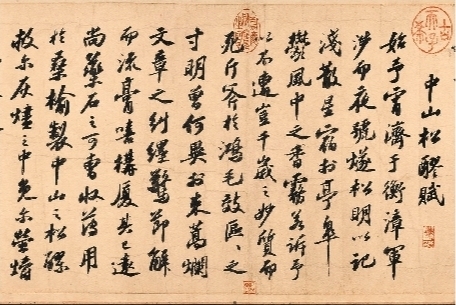 中山松醪賦
始予宵濟于衡漳軍
涉而夜號燧松明以記
淺散星宿於亭皋
鬱風中之香霧若訴予
以不遭豈千歲之妙質而
死斤斧於鴻毛效區區之
寸明曾何異於束蒿爛
文章之糾纆驚節解
而流膏嘻構厦其已遠
尚藥石之可曹收薄用
於桑榆製中山之松醪
救尓灰燼之中免尓螢爝